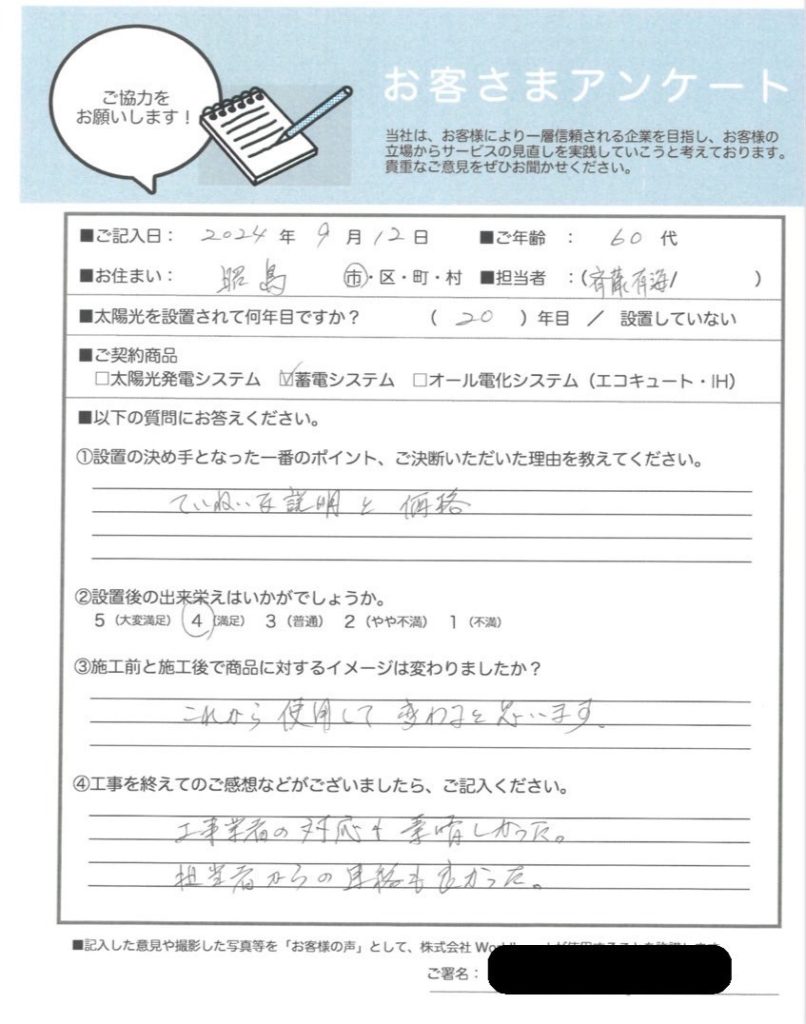 ご協力を
お願いします！
お客さまアンケート
当社は、お客様により一層信頼される企業を目指し、お客様の
立場からサービスの見直しを実践していこうと考えております。
貴重なご意見をぜひお聞かせください。
■ご記入日： 2024 年 9 月 12 日 ■ご年齢 ： 60 代
■お住まい： 昭島 市・区・町・村 ■担当者 ：(斉藤有海 )
■太陽光を設置されて何年目ですか？ （ 20 ）年目 ／ 設置していない
■ご契約商品
□太陽光発電システム ☑蓄電システム □オール電化システム（エコキュート・IH）
■以下の質問にお答えください。
①設置の決め手となった一番のポイント、ご決断いただいた理由を教えてください。
ていねいな説明と価格
②設置後の出来栄えはいかがでしょうか。
5（大変満足） 4（満足） 3（普通） 2（やや不満） 1（不満）
③施工前と施工後で商品に対するイメージは変わりましたか？
これから使用して変わると思います。
④工事を終えてのご感想などがございましたら、ご記入ください。
工事業者の対応も素晴しかった。
担当者からの連絡も良かった。
■記入した意見や撮影した写真等を「お客様の声」として、株式会社
ご署名：